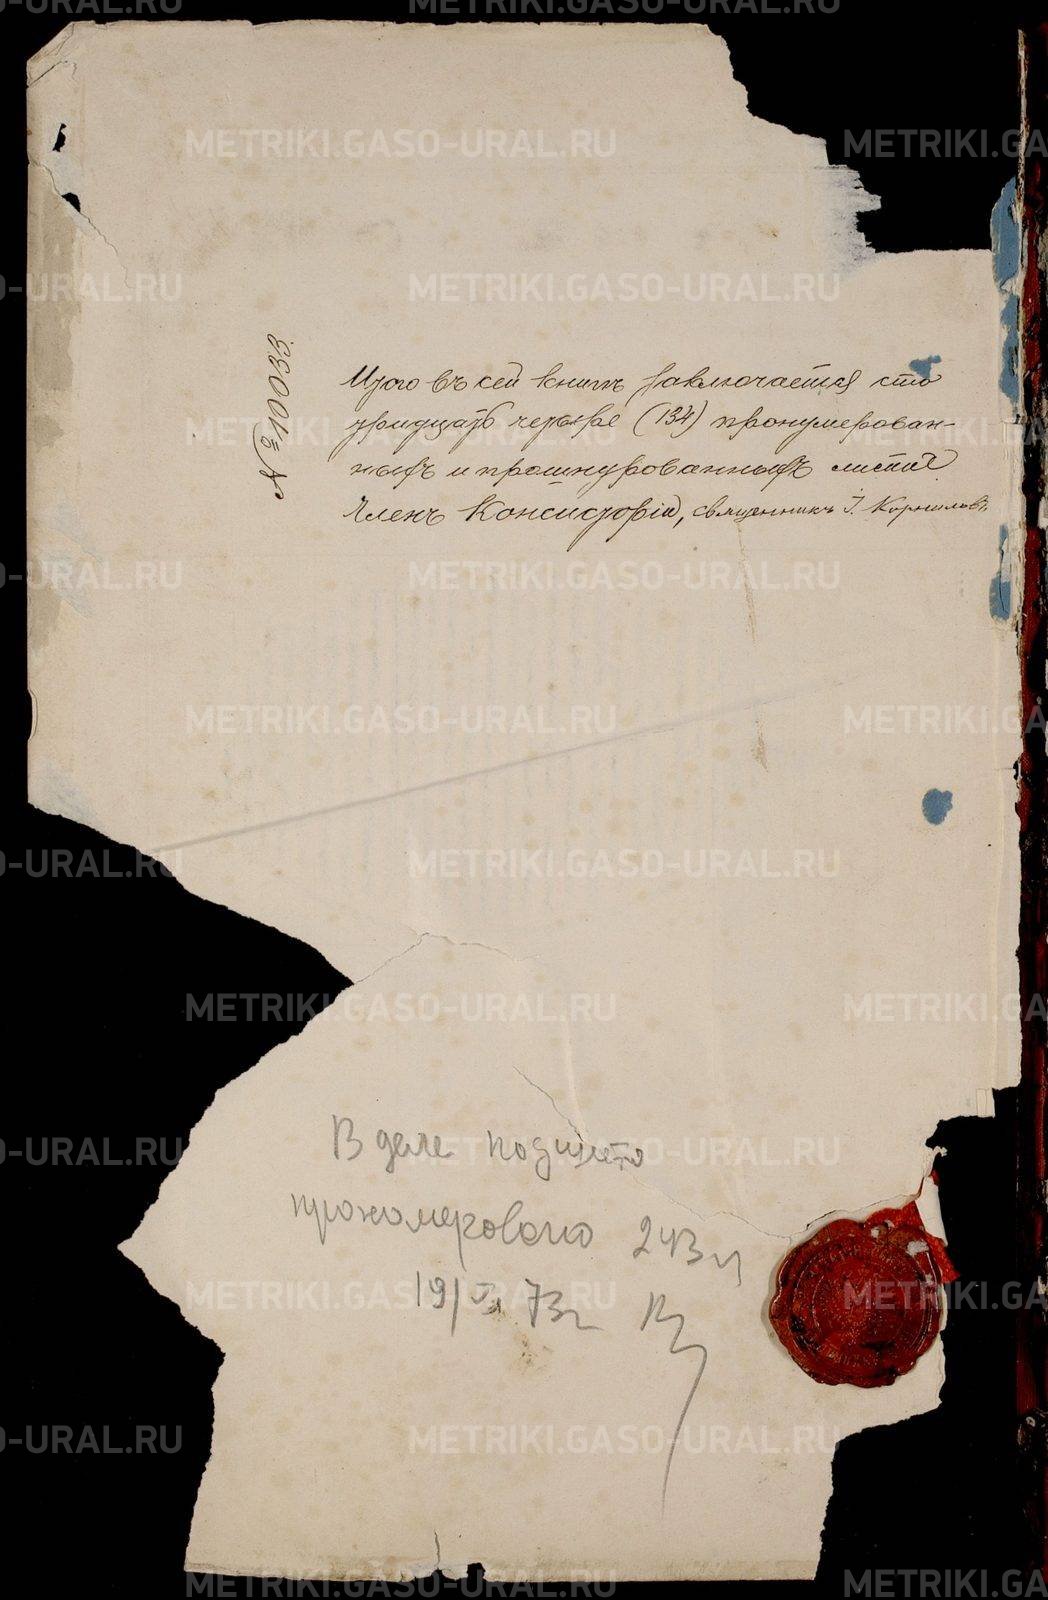 № 10033
Итого въ сей книгѣ заключается сто
тридцать четыре (134) пронумерован-
ныхъ и прошнурованныхъ листа
Членъ Консисторіи, священникъ І. Корниловъ
В деле подшито
пронумеровано 243 л
19/VI 73г
METRIKI.GASO-URAL.RU